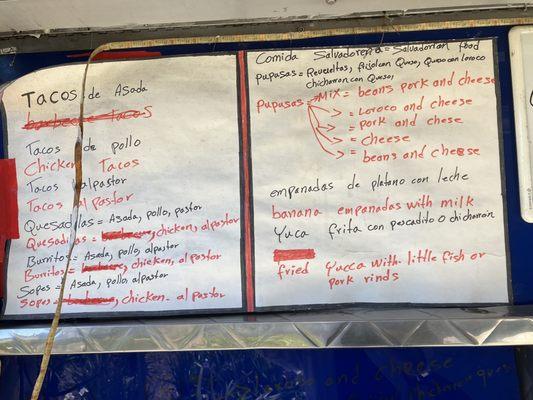 Tacos de Asada
barbecue tacos
Tacos de pollo
Chicken Tacos
Tacos alpastor
Tacos al pastor
Quesadillas = Asada, pollo, pastor
Quesadillas = barbecue, chicken, alpastor
Burritos = Asada, pollo, alpastor
Burritos = barbecue, chicken, alpastor
Sopes = Asada, pollo, alpastor
Sopes = barbecue, chicken - al pastor
Comida Salvadoreña = Salvadorran food
pupusas = Revueltas, frijol con Queso, Queso con loroco
chicharron con Queso,
Pupusas = Mix = beans pork and cheese
= Loroco and cheese
= pork and chese
= cheese
= beans and cheese
empanadas de platano con leche
banana empanadas with milk
Yuca frita con pescadito o chicharrón
fried Yucca with little fish or
pork rinds
and cheese